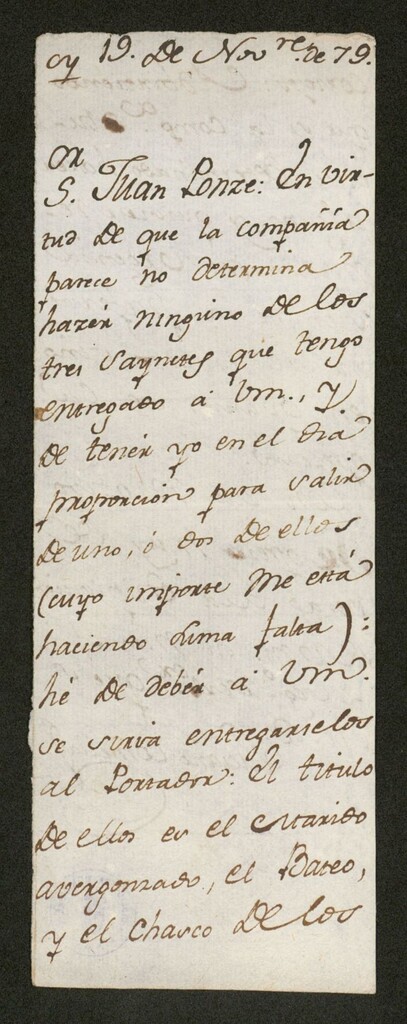 oy 19. de Nov.re de 79.
or
S. Juan Ponze: En vir-
tud de que la compañia
parece no determina
hazér ninguno de los
tres saynetes que tengo
entregado á Vm., y
de tenér yo en el dia
proporción para salir
de uno, ó dos de ellos
(cuyo importe me está
haciendo suma falta):
hé de debér á Vm.
se sirva entregarselos
al Portador: El titulo
de ellos es el Marido
avergonzado, el Bateo,
y el Chasco de los